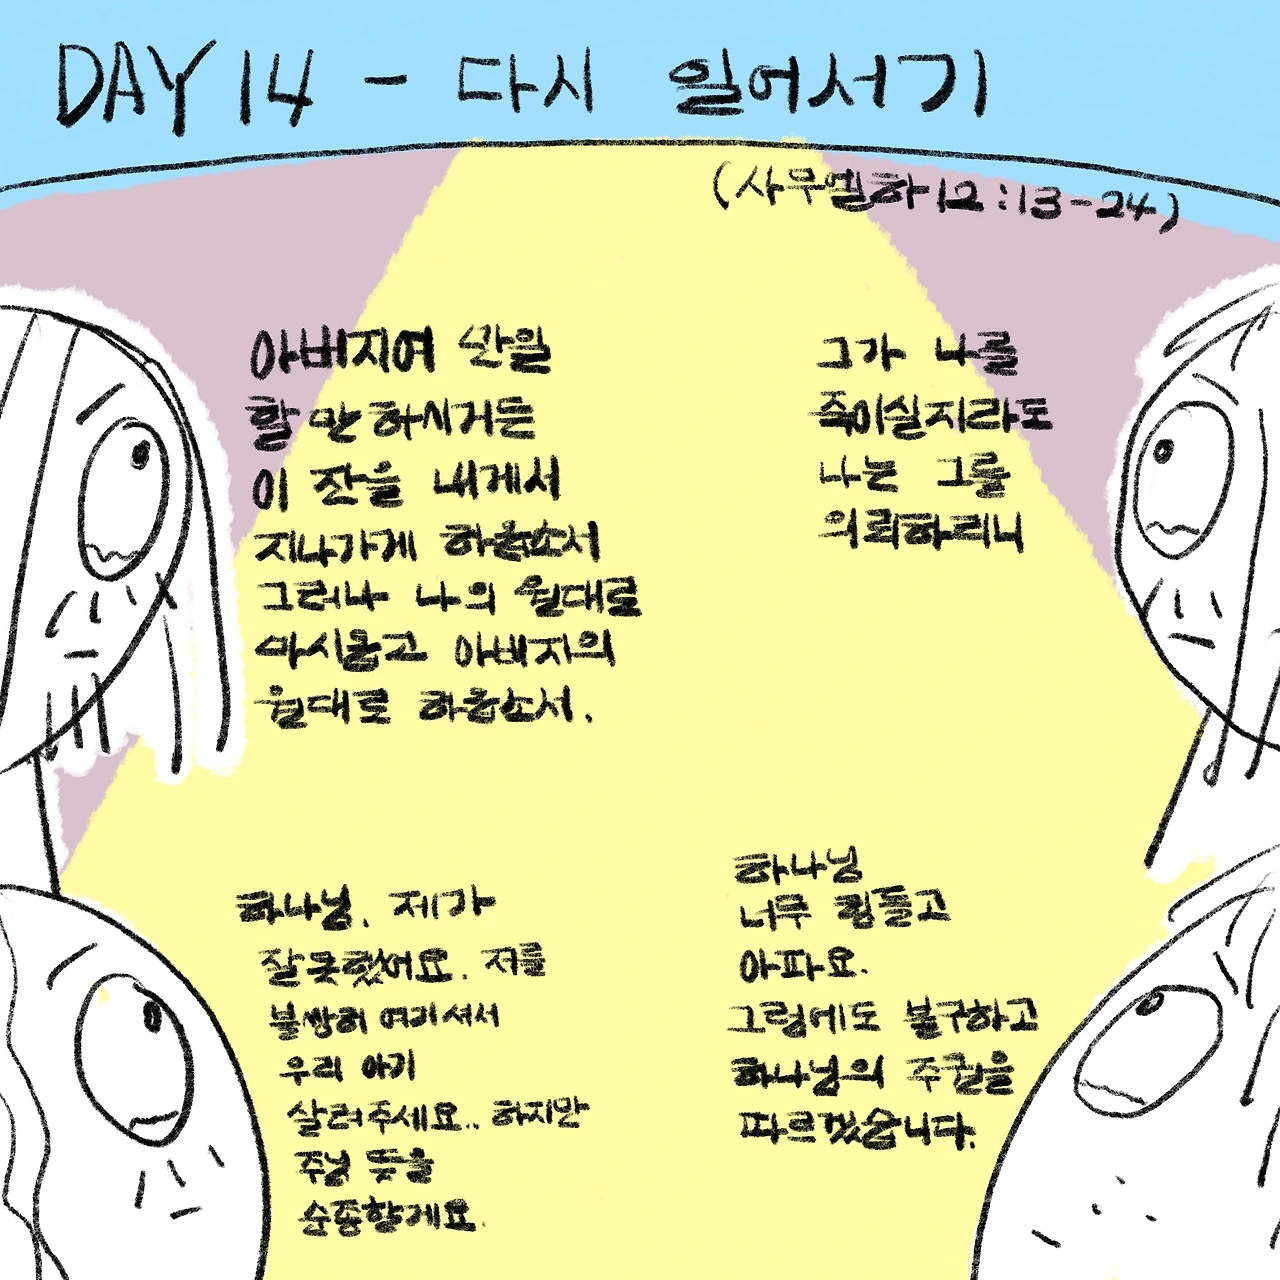 DAY 14 - 다시 일어서기
(사무엘하 12:13-24)
아버지여 만일
할 만 하시거든
이 잔을 내게서
지나가게 하옵소서
그러나 나의 원대로
마시옵고 아버지의
원대로 하옵소서.
그가 나를
죽이실지라도
나는 그를
의뢰하리니
하나님. 제가
잘못했어요. 저를
불쌍히 여기셔서
우리 아기
살려주세요.. 하지만
주님 뜻을
순종할게요.
하나님
너무 힘들고
아파요.
그럼에도 불구하고
하나님의 주권을
따르겠습니다.